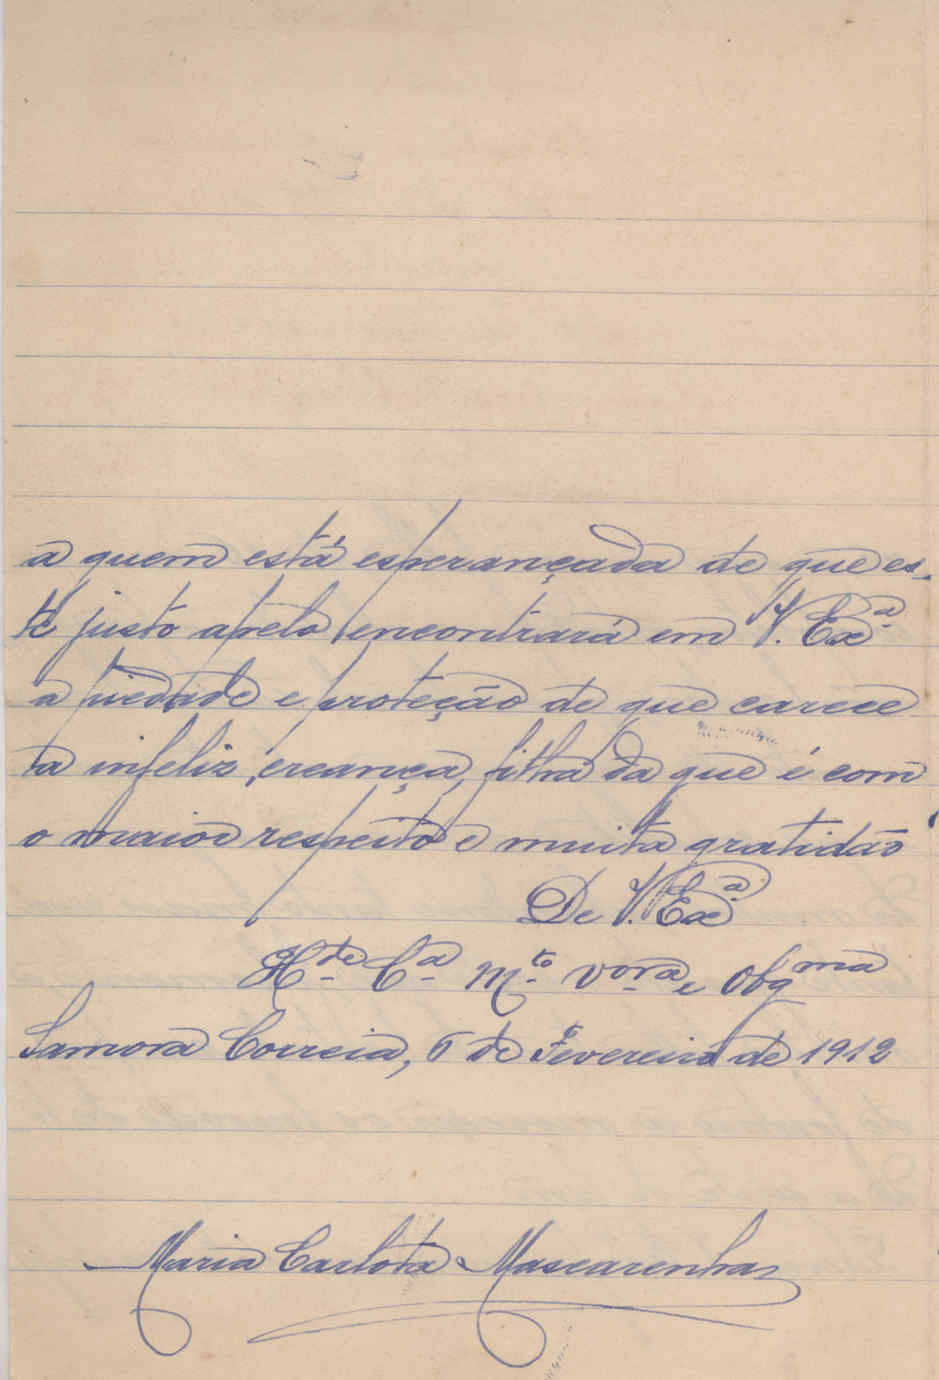 a quem está esperançada de que es-
te justo apelo encontrará em V. Exª
a piedade e proteção de que carece
ta infeliz creança, filha da que é com
o maior respeito e muita gratidão
De V. Exª
Mª Cª M.to V.ora e Obgma
Samora Correia, 6 de Fevereiro de 1912
Maria Carlota Mascarenhas